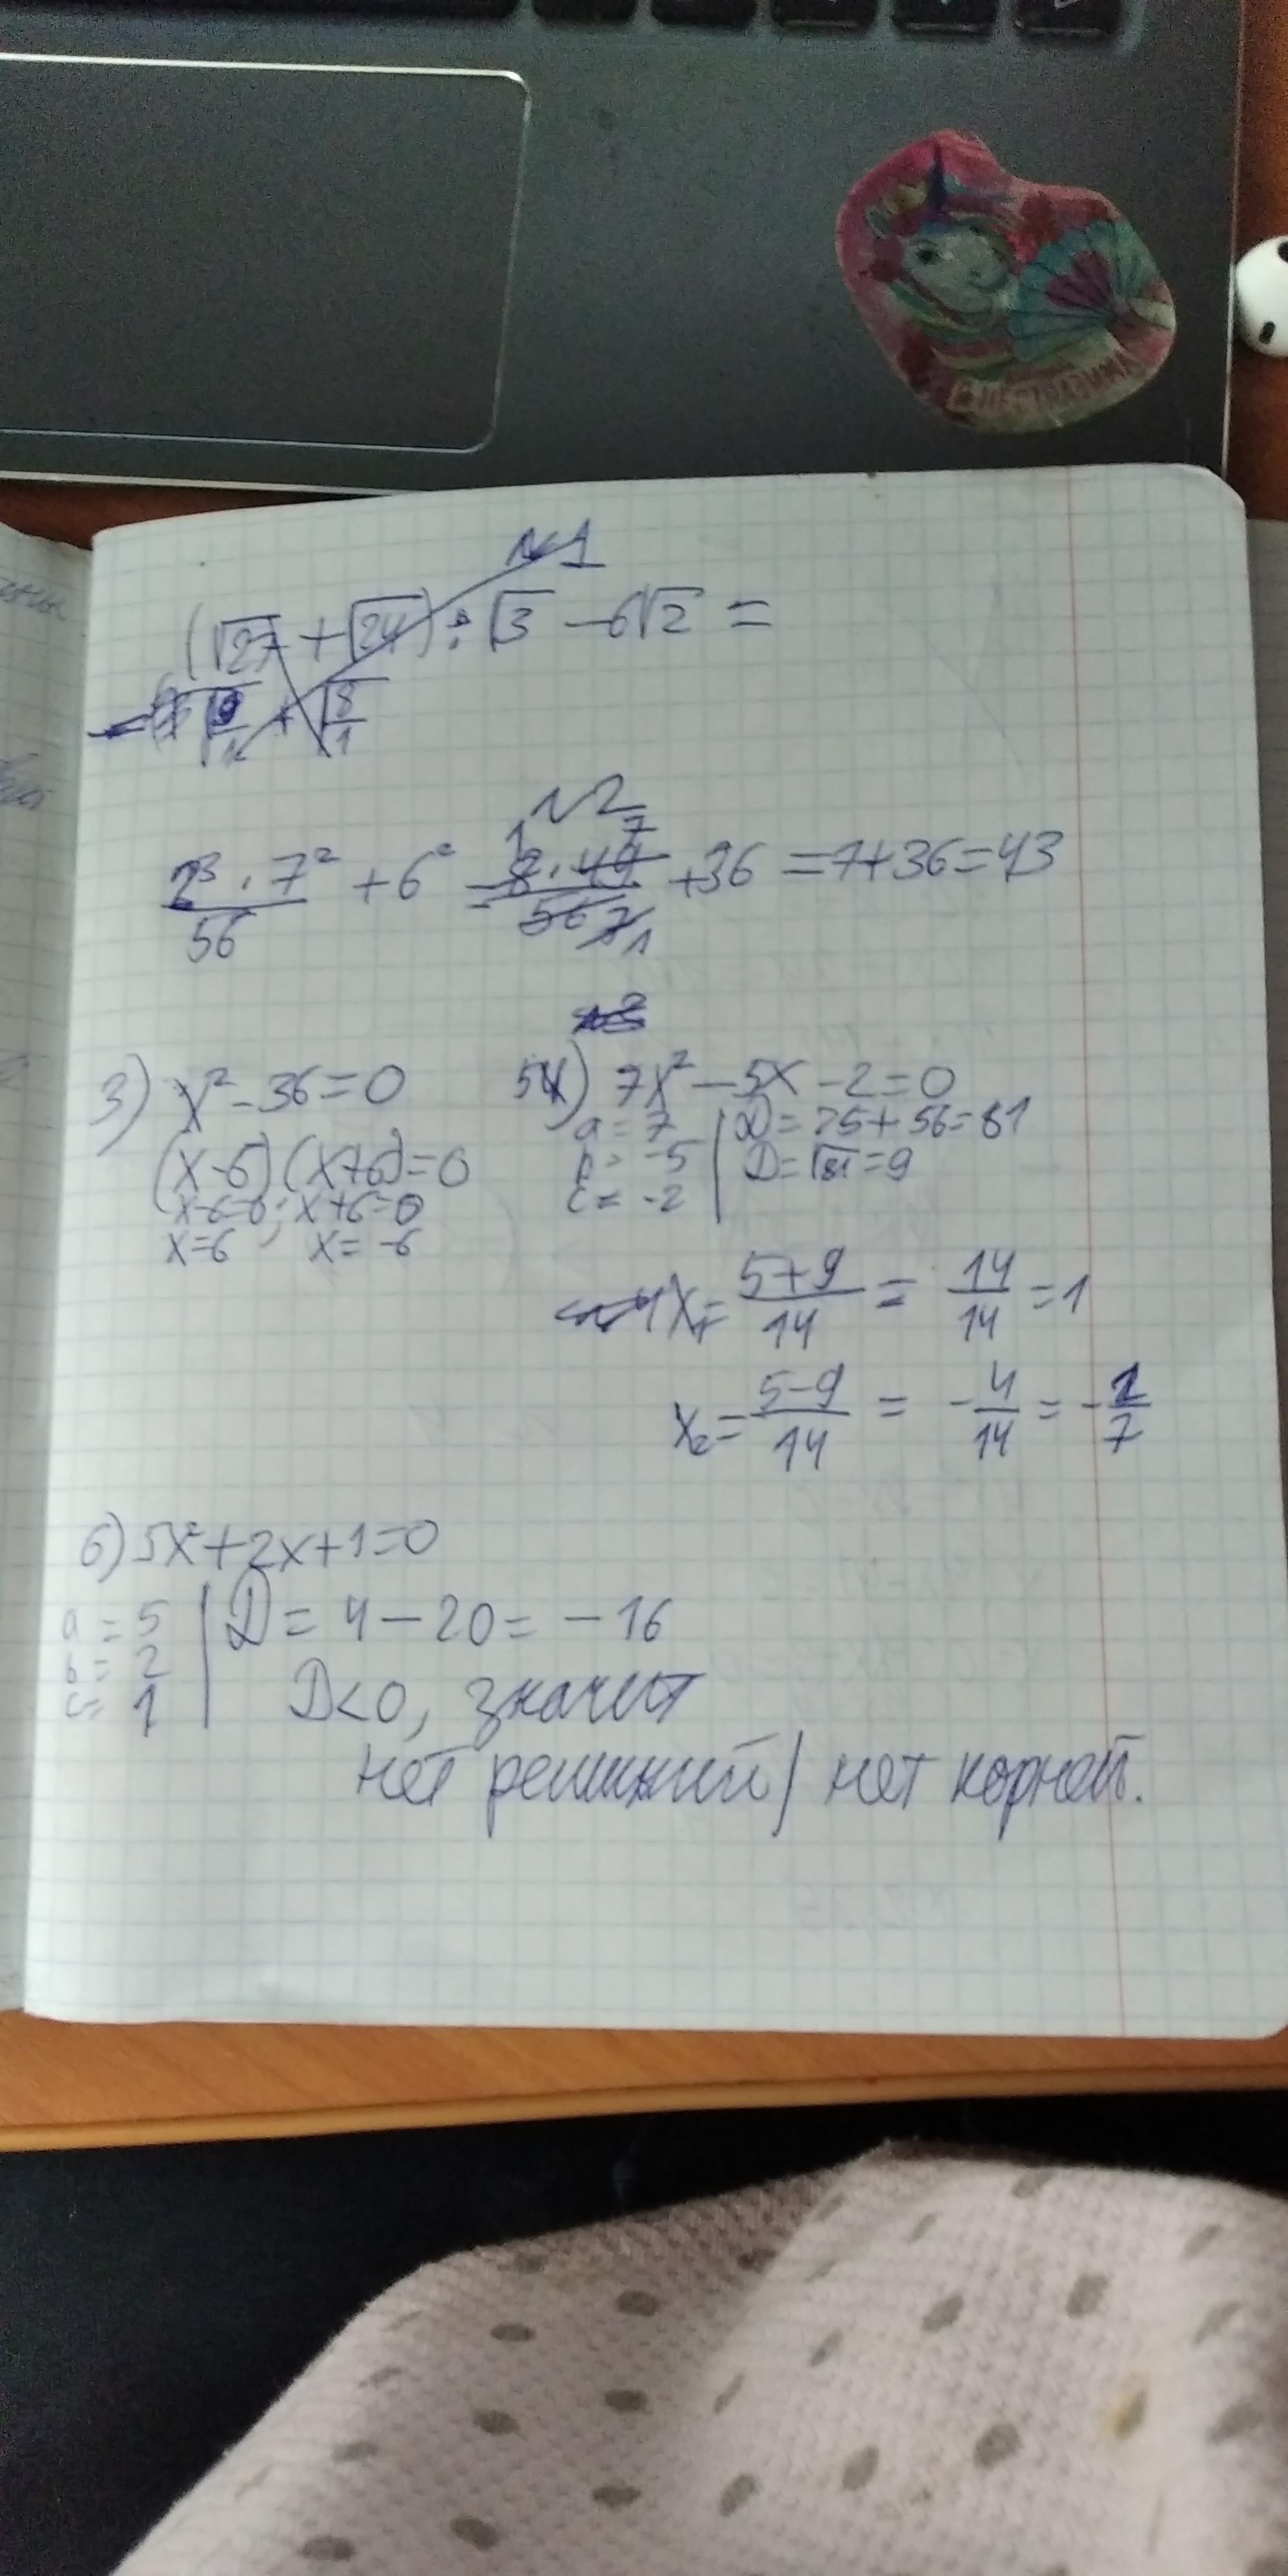 Я НЕОТРАЗИМА
№1
(√27 + √24) : √3 − 6√2 =
√9/1 + √8/1
№2
2³ · 7² / 56 + 6² = 8 · 49 / 56 + 36 = 7 + 36 = 43
3) x² − 36 = 0
(x − 6)(x + 6) = 0
x − 6 = 0; x + 6 = 0
x = 6; x = −6
5) 7x² − 5x − 2 = 0
a = 7 | D = 25 + 56 = 81
b = −5 | D = √81 = 9
c = −2
x₁ = 5+9/14 = 14/14 = 1
x₂ = 5−9/14 = −4/14 = −2/7
6) 5x² + 2x + 1 = 0
a = 5 | D = 4 − 20 = −16
b = 2
c = 1 | D < 0, значит
нет решиний / нет корней.